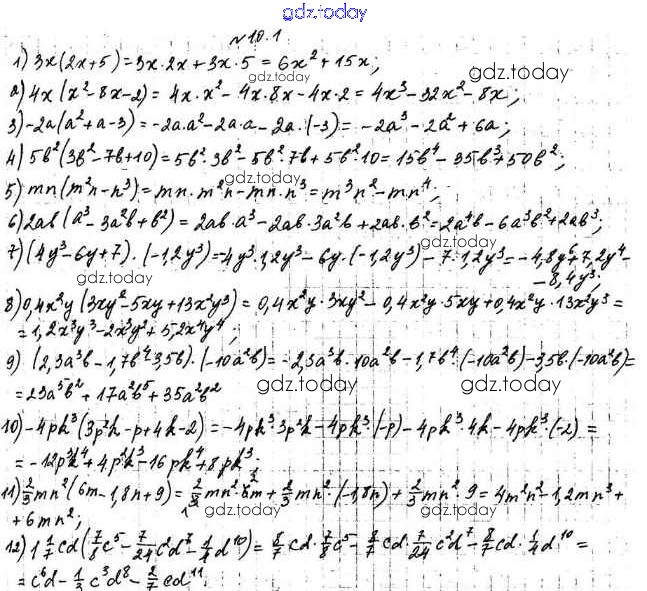 gdz.today
№10.1
1) 3x(2x+5)=3x·2x+3x·5=6x²+15x;
2) 4x(x²-8x-2)=4x·x²-4x·8x-4x·2=4x³-32x²-8x;
3) -2a(a²+a-3)=-2a·a²-2a·a-2a·(-3)=-2a³-2a²+6a;
4) 5b²(3b²-7b+10)=5b²·3b²-5b²·7b+5b²·10=15b⁴-35b³+50b²;
5) mn(m²n-n³)=mn·m²n-mn·n³=m³n²-mn⁴;
6) 2ab(a³-3a²b+b²)=2ab·a³-2ab·3a²b+2ab·b²=2a⁴b-6a³b²+2ab³;
7) (4y³-6y+7)·(-1,2y³)=-4y³·1,2y³-6y·(-1,2y³)-7·1,2y³=-4,8y⁶+7,2y⁴-
-8,4y³;
8) 0,4x²y(3xy²-5xy+13x²y³)=0,4x²y·3xy²-0,4x²y·5xy+0,4x²y·13x²y³=
=1,2x³y³-2x³y²+5,2x⁴y⁴;
9) (2,3a³b-1,7b⁴-3,5b)·(-10a²b)=-2,3a³b·10a²b-1,7b⁴·(-10a²b)-3,5b·(-10a²b)=
=23a⁵b²+17a²b⁵+35a²b²
10) -4pk³(3p²k-p+4k-2)=-4pk³·3p²k-4pk³·(-p)-4pk³·4k-4pk³·(-2)=
=-12p³k⁴+4p²k³-16pk⁴+8pk³
11) 2/3mn²(6m-1,8n+9)=2/3mn²·6m+2/3mn²·(-1,8n)+2/3mn²·9=4m²n²-1,2mn³+
+6mn²;
12) 1 1/7cd(7/8c⁵-7/24c²d⁷-1/4d¹⁰)=8/7cd·7/8c⁵-8/7cd·7/24c²d⁷-8/7cd·1/4d¹⁰=
=c⁶d-1/3c³d⁸-2/7cd¹¹